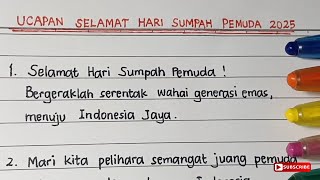 UCAPAN SELAMAT HARI SUMPAH PEMUDA 2025
1. Selamat Hari Sumpah Pemuda !
Bergeraklah serentak wahai generasi emas,
menuju Indonesia Jaya.
2. Mari kita pelihara semangat juang pemuda
Indonesia
SUBSCRIBE